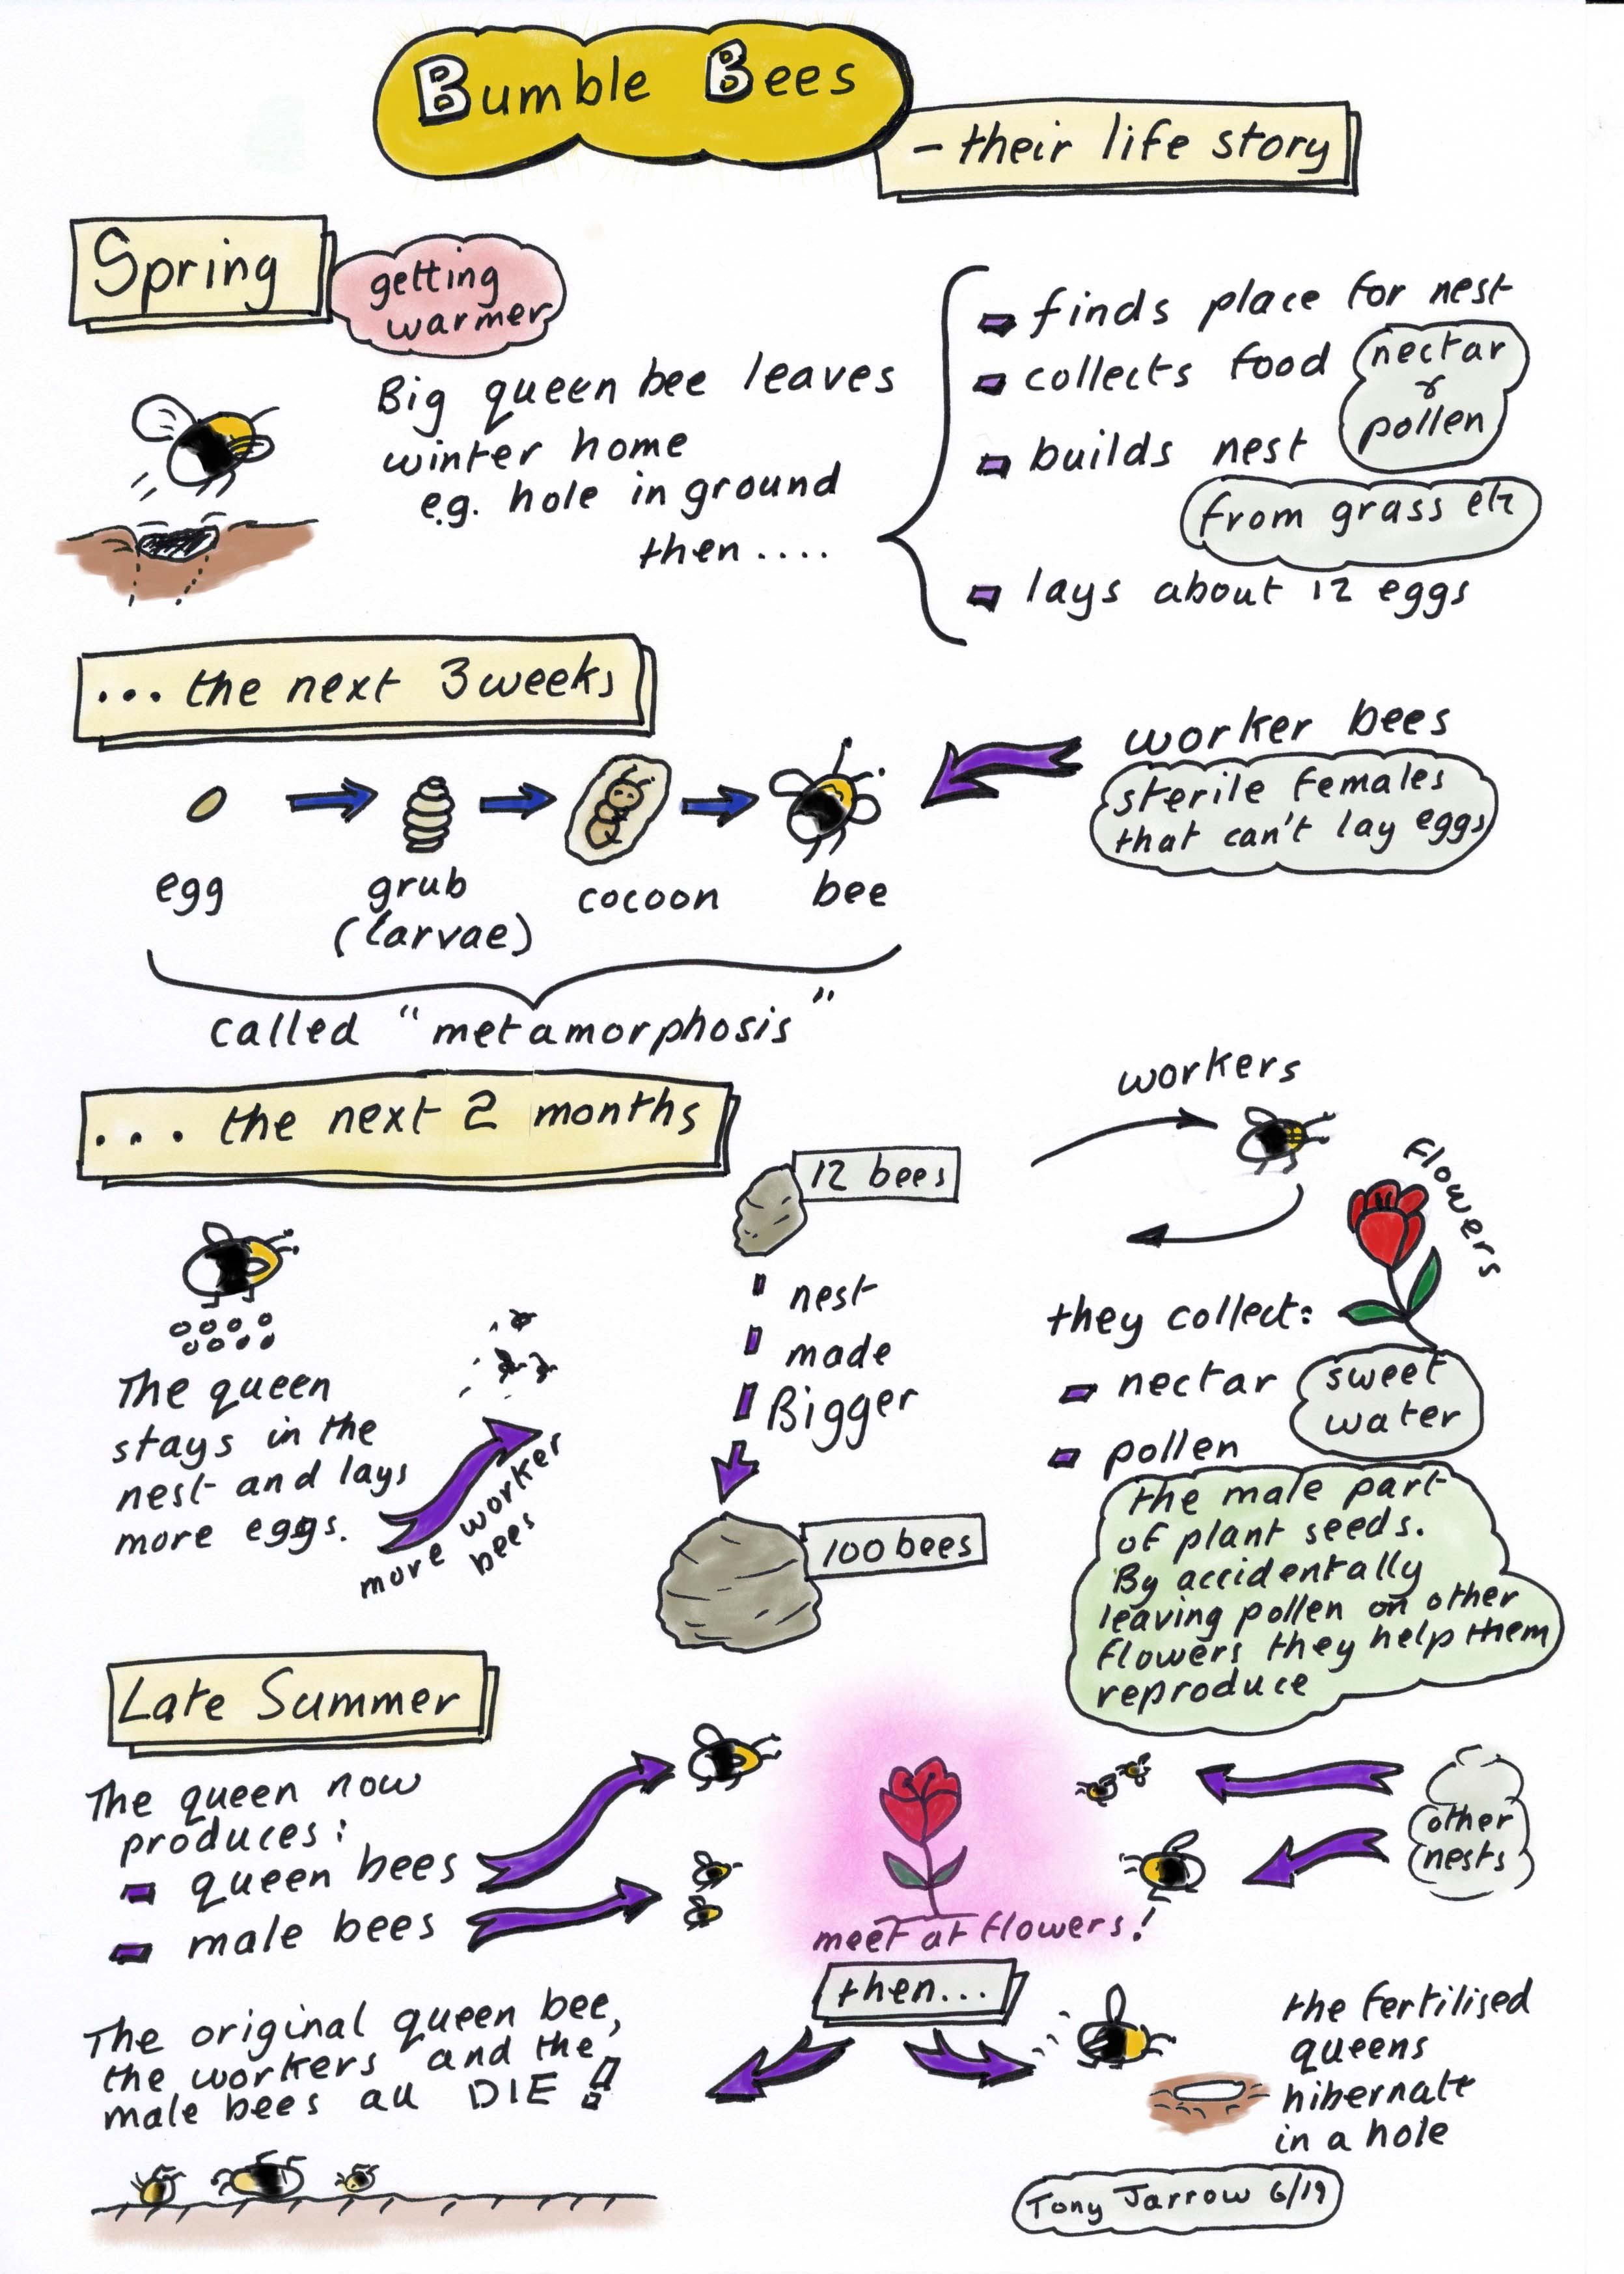 Bumble Bees
- their life story
Spring
getting
warmer
Big queen bee leaves
winter home
e.g. hole in ground
then ....
finds place for nest
collects food
nectar
&
pollen
builds nest
from grass etc
lays about 12 eggs
... the next 3 weeks
egg
grub
(larvae)
cocoon
bee
worker bees
sterile females
that can't lay eggs
called "metamorphosis"
... the next 2 months
The queen
stays in the
nest and lays
more eggs.
more worker
bees
12 bees
nest
made
Bigger
100 bees
workers
flowers
they collect:
nectar
sweet
water
pollen
the male part
of plant seeds.
By accidentally
leaving pollen on other
flowers they help them
reproduce
Late Summer
The queen now
produces:
queen bees
male bees
meet at flowers!
other
nests
then...
The original queen bee,
the workers and the
male bees all DIE!
the fertilised
queens
hibernate
in a hole
Tony Jarrow 6/19